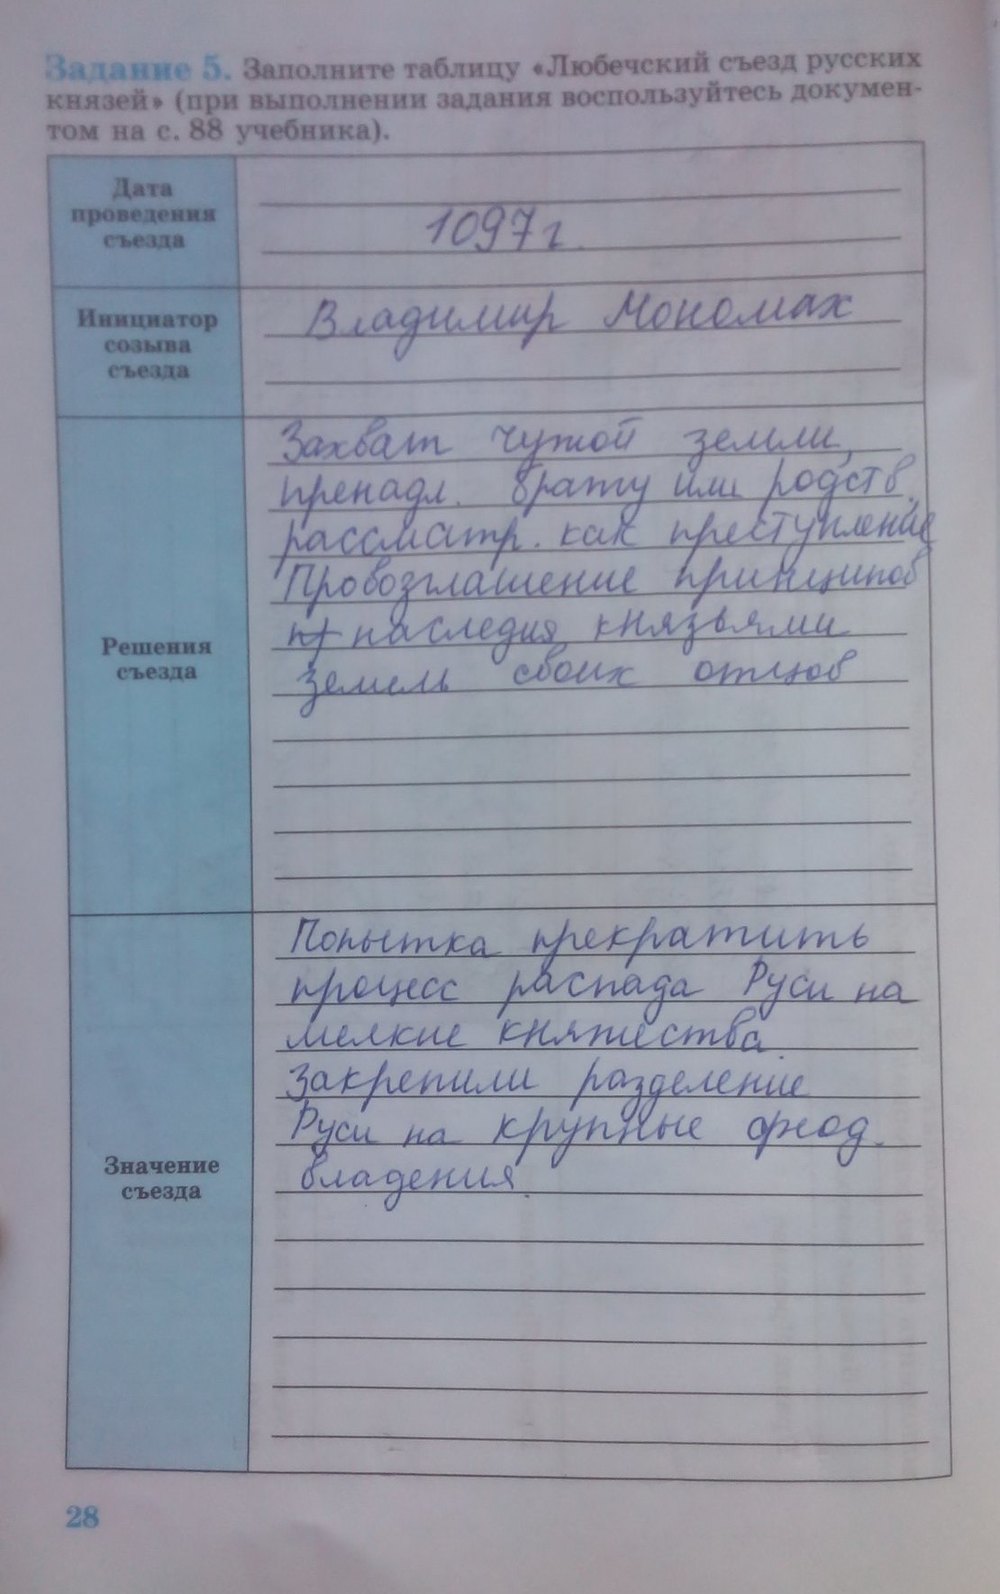 Задание 5. Заполните таблицу «Любечский съезд русских
князей» (при выполнении задания воспользуйтесь докумен-
том на с. 88 учебника).
Дата
проведения
съезда
1097 г.
Инициатор
созыва
съезда
Владимир Мономах
Решения
съезда
Захват чужой земли,
пренадл. брату или родств.
рассматр. как преступление
Провозглашение принципов
наследия князьями
земель своих отцов
Значение
съезда
Попытка прекратить
процесс распада Руси на
мелкие княжества.
Закрепили разделение
Руси на крупные феод.
владения.
28